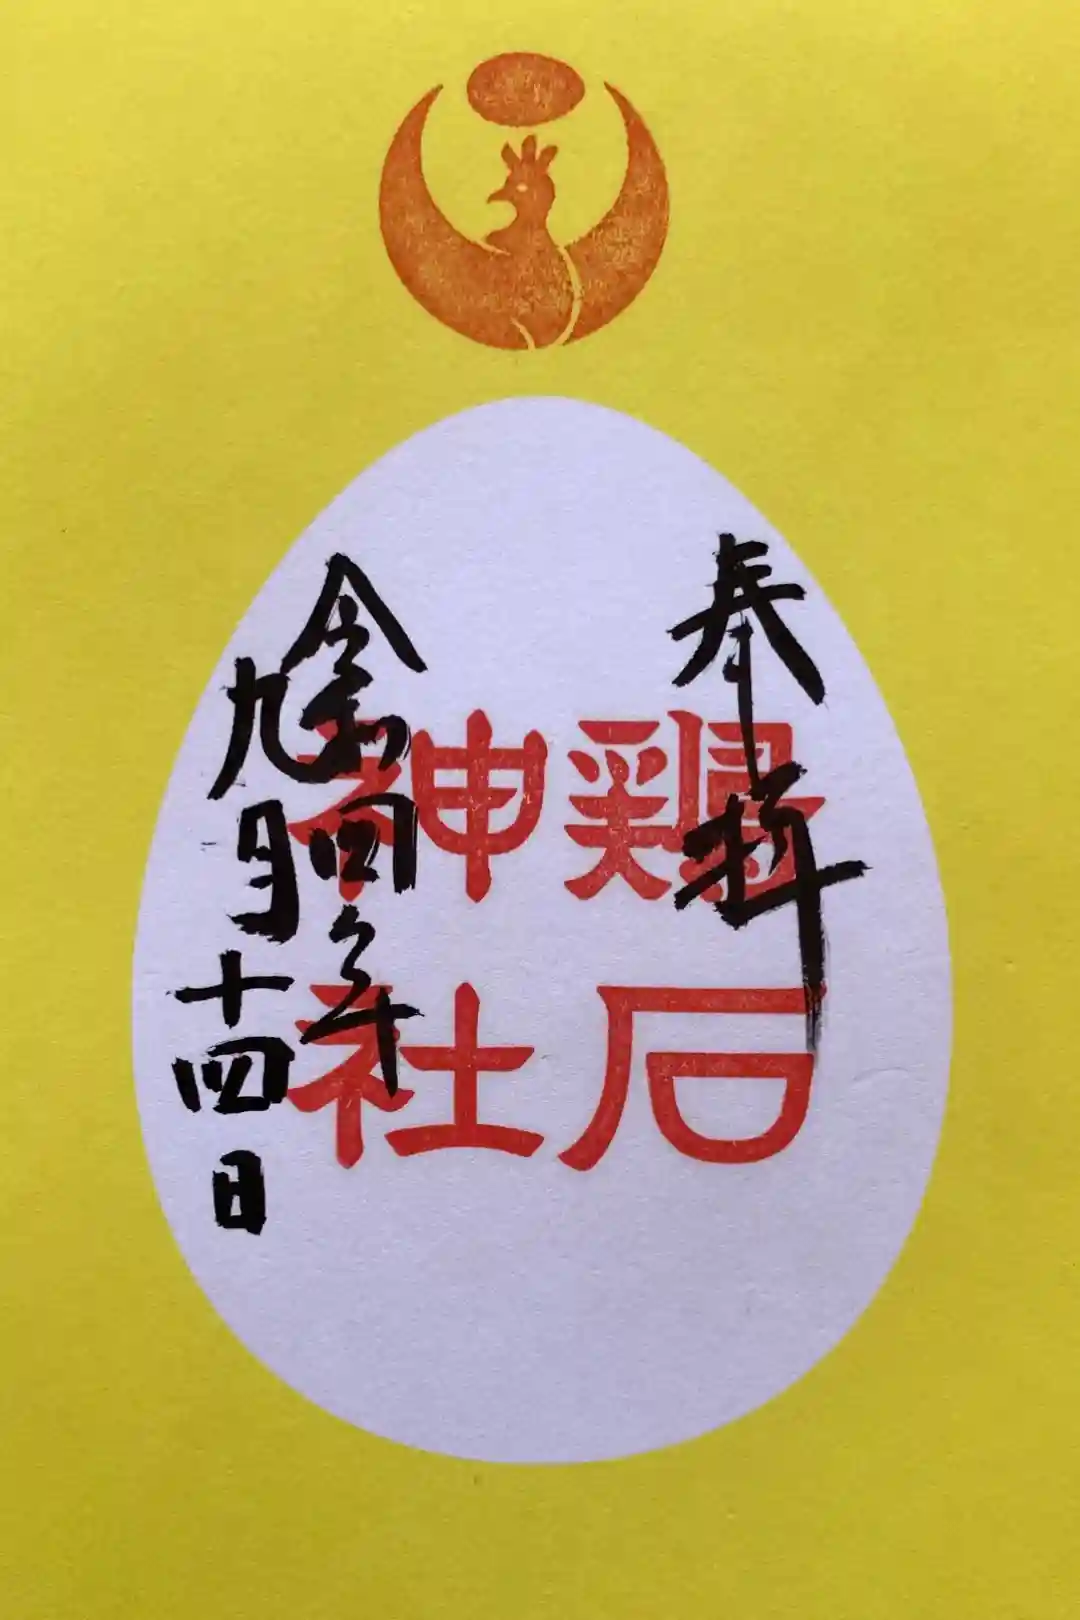 奉拝
鶏石
神社
令和四年
九月十四日